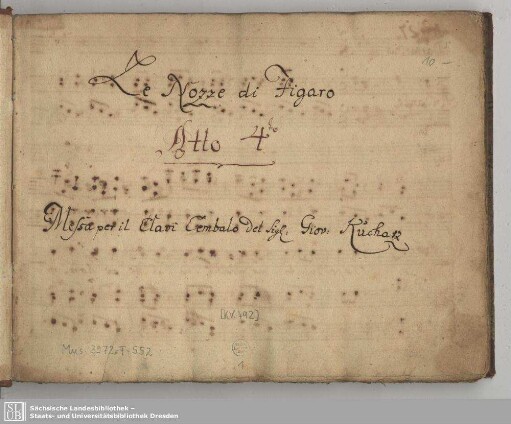 10 –
Le Nozze di Figaro
Atto 4to
Messa per il Clavi Cembalo del Sigl: Giov: Kuchaz
[KV. 492]
Mus. 3972-F-552
1
SLUB
Sächsische Landesbibliothek –
Staats- und Universitätsbibliothek Dresden